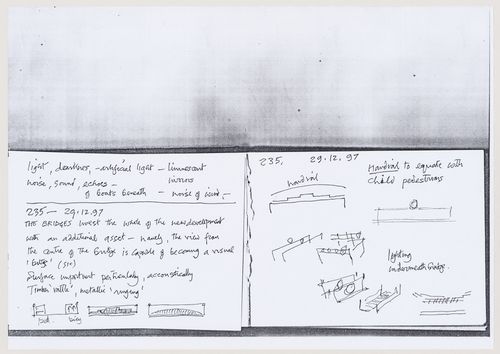 light, darkness, - artificial light - luminescent
mirrors
noise, sound, echoes -
of boats beneath - noise of wind, -
235 - 29.12.97
THE BRIDGES invest the whole of the new development
with an additional asset - namely, the view from
the centre of the bridge is capable of becoming a visual
Surface important particularly, acoustically
Timber 'rattle', metallic 'ringing'
235, 29.12.97
Handrail to equate with
child pedestrians
handrail
lighting
underneath bridge.